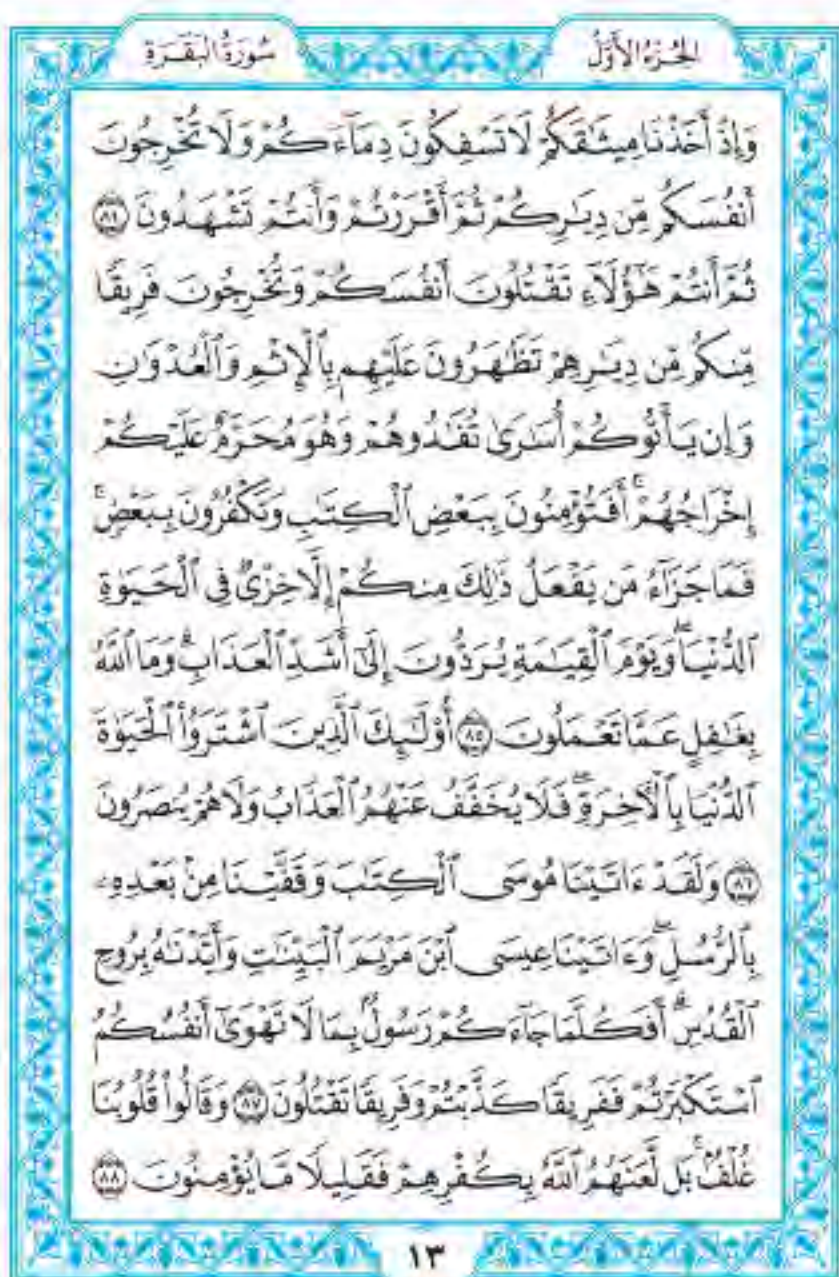 الجُزءُ الأَوَّلُ سُورَةُ البَقَرَةِ
وَإِذْ أَخَذْنَا مِيثَٰقَكُمْ لَا تَسْفِكُونَ دِمَآءَكُمْ وَلَا تُخْرِجُونَ
أَنفُسَكُم مِّن دِيَٰرِكُمْ ثُمَّ أَقْرَرْتُمْ وَأَنتُمْ تَشْهَدُونَ ٨٤
ثُمَّ أَنتُمْ هَٰٓؤُلَآءِ تَقْتُلُونَ أَنفُسَكُمْ وَتُخْرِجُونَ فَرِيقًا
مِّنكُم مِّن دِيَٰرِهِمْ تَظَٰهَرُونَ عَلَيْهِم بِٱلْإِثْمِ وَٱلْعُدْوَٰنِ
وَإِن يَأْتُوكُمْ أُسَٰرَىٰ تُفَٰدُوهُمْ وَهُوَ مُحَرَّمٌ عَلَيْكُمْ
إِخْرَاجُهُمْ ۚ أَفَتُؤْمِنُونَ بِبَعْضِ ٱلْكِتَٰبِ وَتَكْفُرُونَ بِبَعْضٍ ۚ
فَمَا جَزَآءُ مَن يَفْعَلُ ذَٰلِكَ مِنكُمْ إِلَّا خِزْىٌ فِى ٱلْحَيَوٰةِ
ٱلدُّنْيَا ۖ وَيَوْمَ ٱلْقِيَٰمَةِ يُرَدُّونَ إِلَىٰٓ أَشَدِّ ٱلْعَذَابِ ۗ وَمَا ٱللَّهُ
بِغَٰفِلٍ عَمَّا تَعْمَلُونَ ٨٥ أُو۟لَٰٓئِكَ ٱلَّذِينَ ٱشْتَرَوُا۟ ٱلْحَيَوٰةَ
ٱلدُّنْيَا بِٱلْءَاخِرَةِ ۖ فَلَا يُخَفَّفُ عَنْهُمُ ٱلْعَذَابُ وَلَا هُمْ يُنصَرُونَ
٨٦ وَلَقَدْ ءَاتَيْنَا مُوسَى ٱلْكِتَٰبَ وَقَفَّيْنَا مِنۢ بَعْدِهِۦ
بِٱلرُّسُلِ ۖ وَءَاتَيْنَا عِيسَى ٱبْنَ مَرْيَمَ ٱلْبَيِّنَٰتِ وَأَيَّدْنَٰهُ بِرُوحِ
ٱلْقُدُسِ ۗ أَفَكُلَّمَا جَآءَكُمْ رَسُولٌۢ بِمَا لَا تَهْوَىٰٓ أَنفُسُكُمُ
ٱسْتَكْبَرْتُمْ فَفَرِيقًا كَذَّبْتُمْ وَفَرِيقًا تَقْتُلُونَ ٨٧ وَقَالُوا۟ قُلُوبُنَا
غُلْفٌۢ ۚ بَل لَّعَنَهُمُ ٱللَّهُ بِكُفْرِهِمْ فَقَلِيلًا مَّا يُؤْمِنُونَ ٨٨
١٣